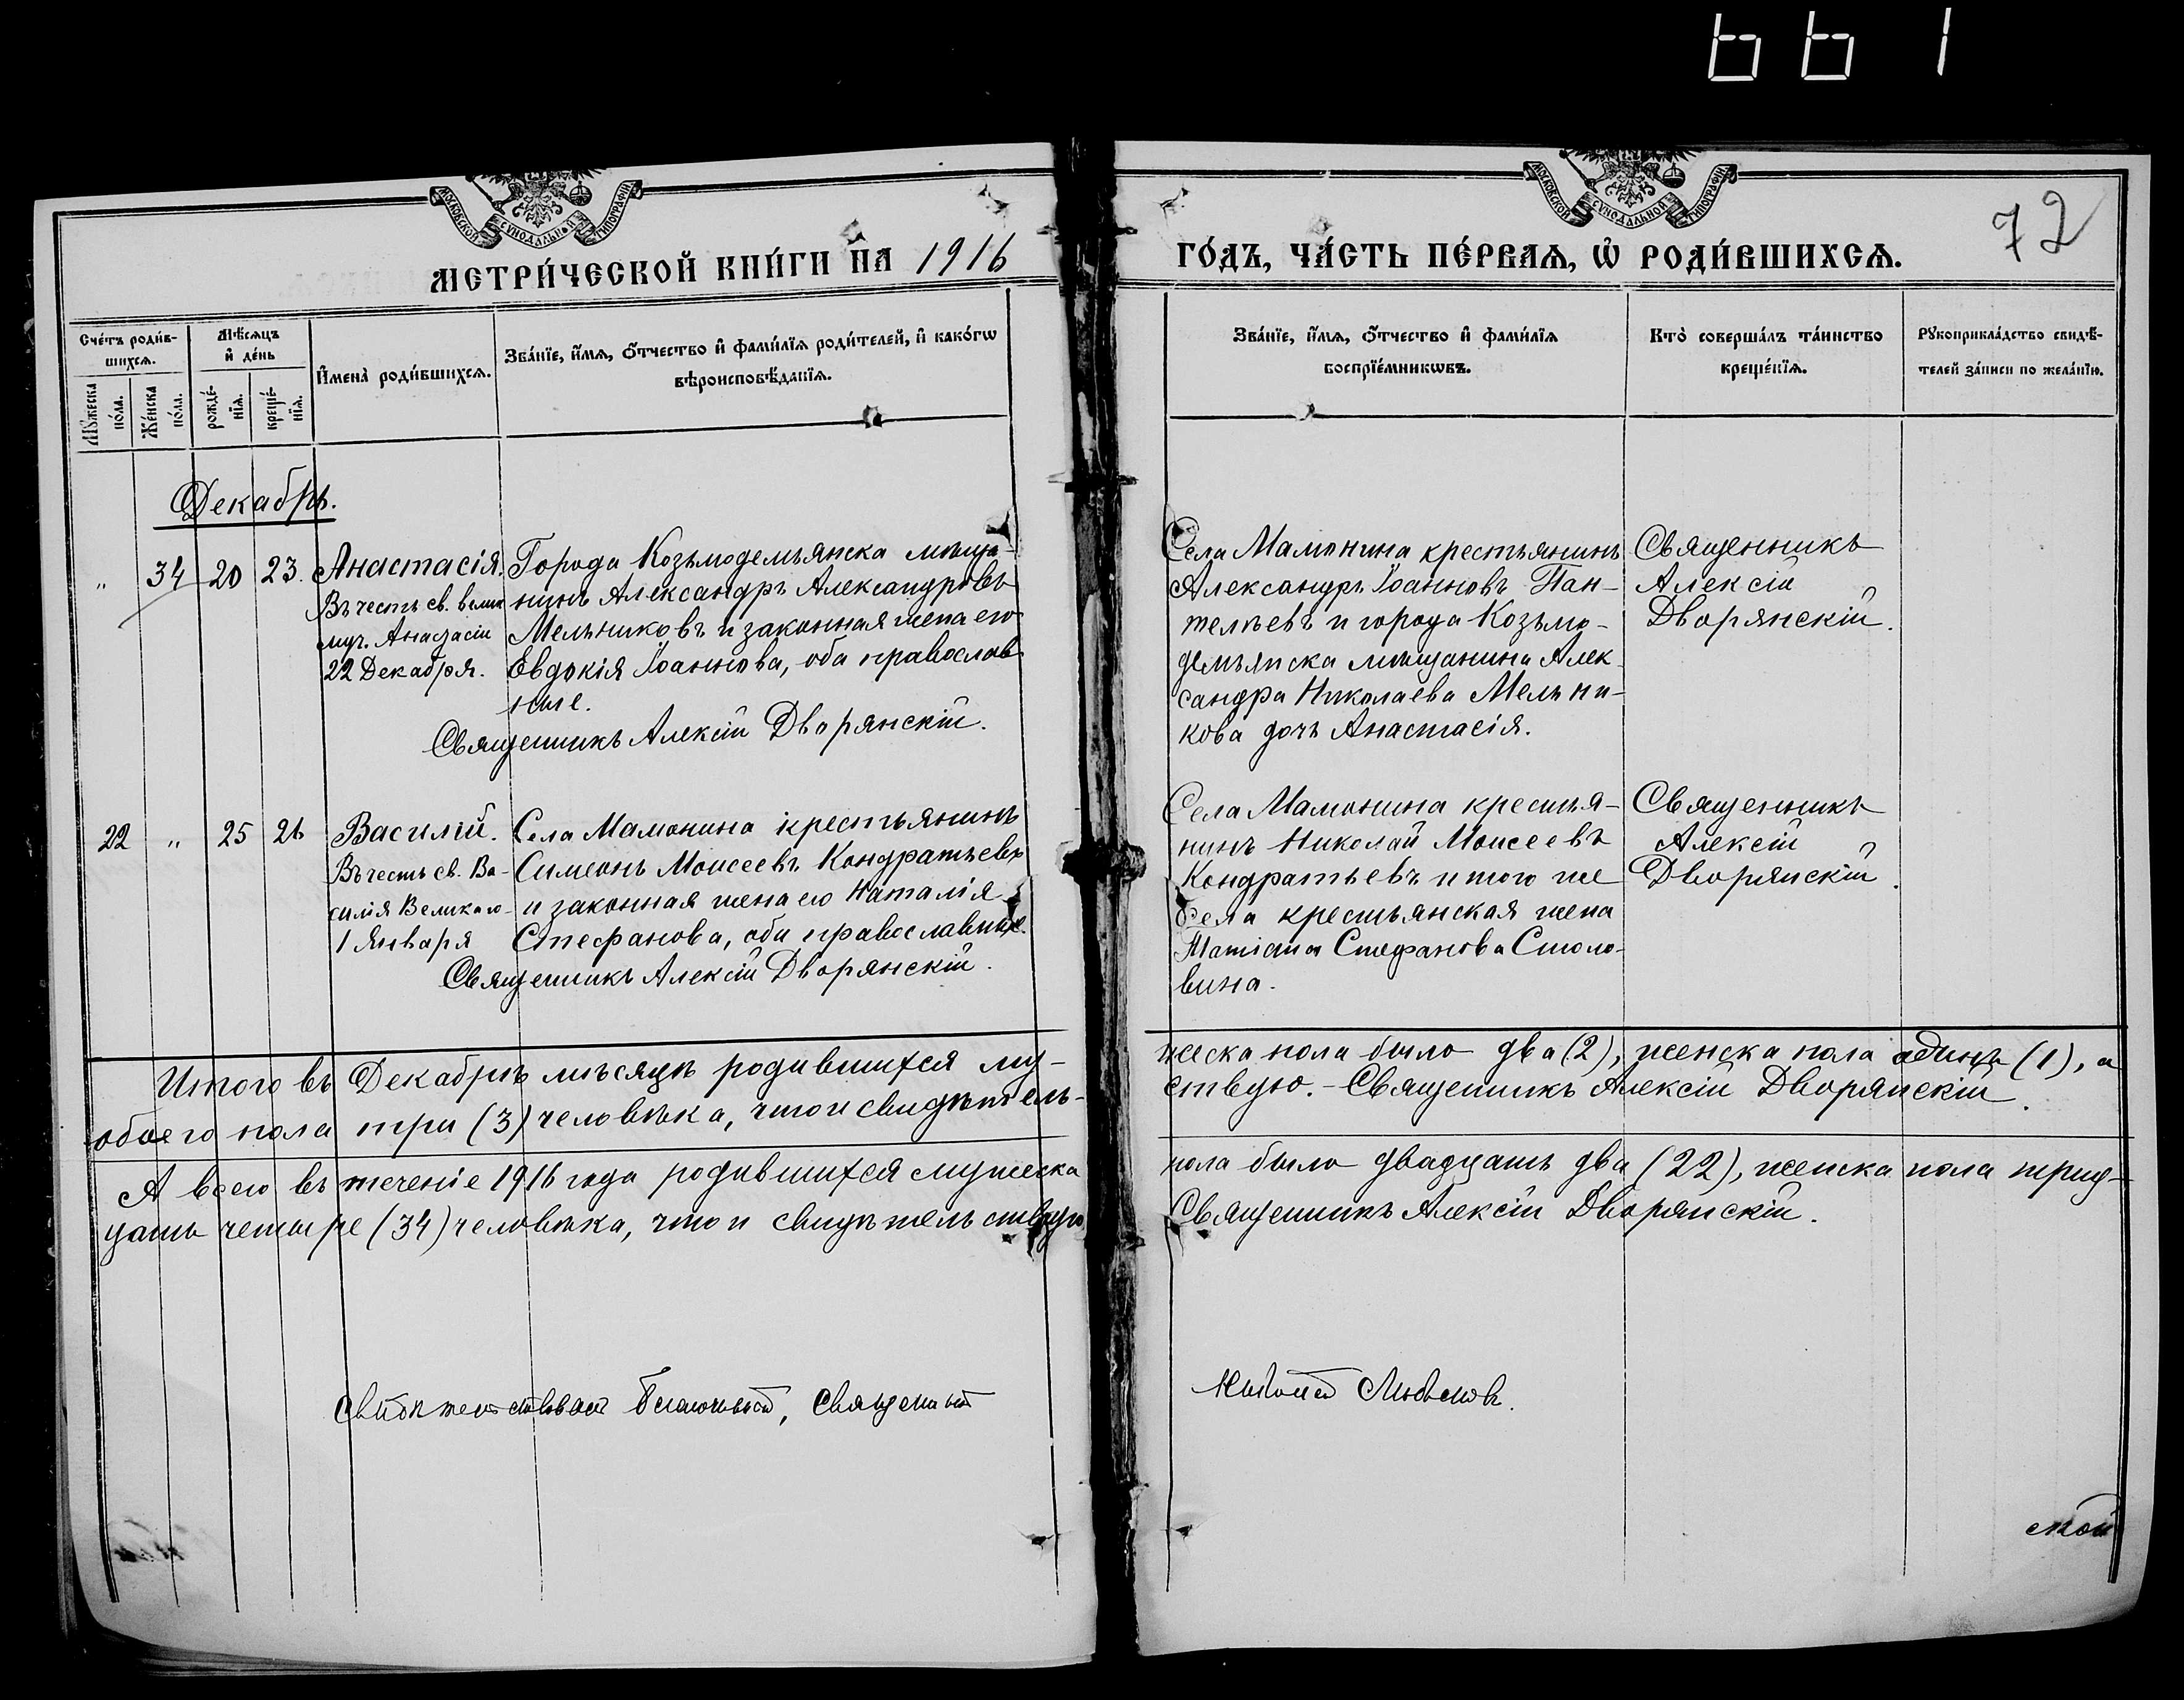 661
МОСКОВСКОЙ СѴНОДАЛЬНОЙ ТИПОГРАФІИ
МОСКОВСКОЙ СѴНОДАЛЬНОЙ ТИПОГРАФІИ
72
МЕТРИ́ЧЕСКОЙ КНИ́ГИ НА 1916 ГО́ДЪ, ЧА́СТЬ ПЕ́РВАѦ, Ѡ РОДИ́ВШИХСѦ.
Сче́тъ роди́в-
шихсѧ.
Мѹжеска
по́ла.
Же́нска
по́ла.
Мѣ́сѧцъ
и де́нь
рожде́-
нїѧ.
креще́-
нїѧ.
Имена̀ роди́вшихсѧ.
Зва́нїе, и́мѧ, о́тчество и фами́лїѧ роди́телей, и како́гѡ
вѣроисповѣ́данїѧ.
Зва́нїе, и́мѧ, о́тчество и фами́лїѧ
воспрїе́мникѡвъ.
Кто̀ соверша́лъ та́инство
креще́нїѧ.
Рѹкоприкла́дство свидѣ́-
телей за́писи по жела́нїю.
Декабрь.
„ 34 20 23.
Анастасія.
Въ честь св. велик
муч. Анастасіи
22 Декабря.
Города Козьмодемьянска мѣща-
нинъ Александръ Александровъ
Мельниковъ и законная жена его
Евдокія Іоаннова, оба православ
ные.
Священникъ Алексій Дворянскій.
Села Мамонина крестьянинъ
Александръ Іоанновъ Пан-
телѣевъ и города Козьмо-
демьянска мѣщанина Алек-
сандра Николаева Мельни-
кова дочь Анастасія.
Священникъ
Алексій
Дворянскій.
22 „ 25 26
Василій.
Въ честь св. Ва-
силія Великаго
1 Января
Села Мамонина крестьянинъ
Симеонъ Моисеевъ Кондратьевъ
и законная жена его Наталія
Стефанова, оба православные.
Священникъ Алексій Дворянскій.
Села Мамонина крестья-
нинъ Николай Моисеевъ
Кондратьевъ и того же
села крестьянская жена
Стефанова Столо-
вина.
Священникъ
Алексій
Дворянскій.
Итого въ Декабрѣ мѣсяцѣ родившихся му-
жеска пола было два (2), женска пола одинъ (1), а
обоего пола три (3) человѣка, что и свидѣтель-
ствую. – Священникъ Алексій Дворянскій.
А всего въ теченіе 1916 года родившихся мужеска
пола было двадцать два (22), женска пола трид-
цать четыре (34) человѣка, что и свидѣтельствую
Священникъ Алексій Дворянскій.
Свидѣтельствовалъ Благочинный, Священникъ
ской